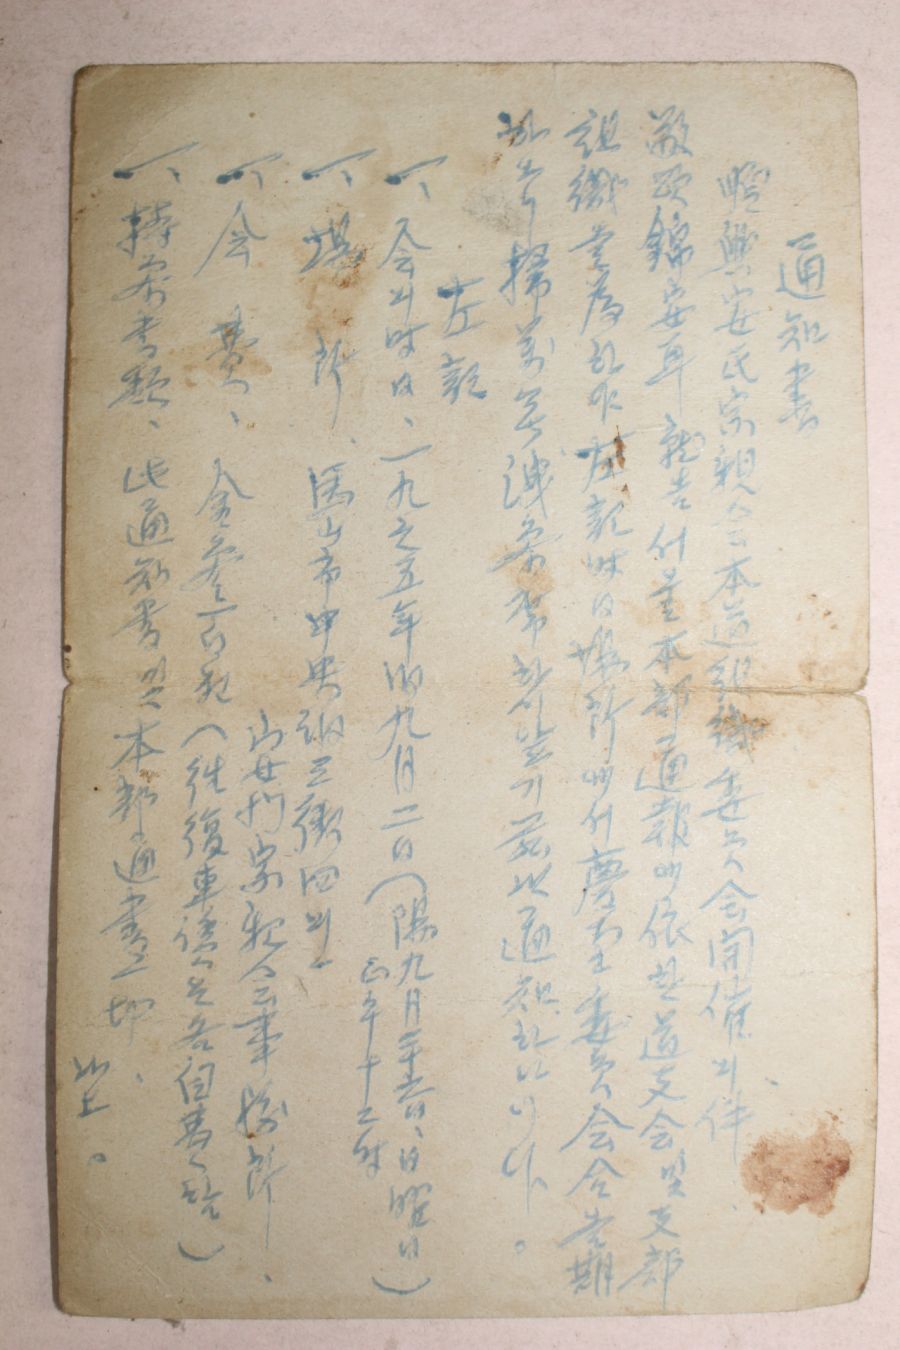 通知書
順興安氏宗親会本道組織委員会開催의件、
敬頌錦安耳 就告
本部通報에依한道支会및支部
組織을為하야左記時日場所에서慶南道委員会合을期
하오니掃萬無洩参席하시압기茲以通知하나이다。
左記
一、会의時日、一九七五年旧九月二日(陽九月二十六日、日曜日)
正午十二時
一、場所、馬山市中央洞三街四의一
安 宗親会事務所、
一、会費、金参百 (往復車 各自負担)
一、持参書類、此通知書및本部通書一切、
以上。